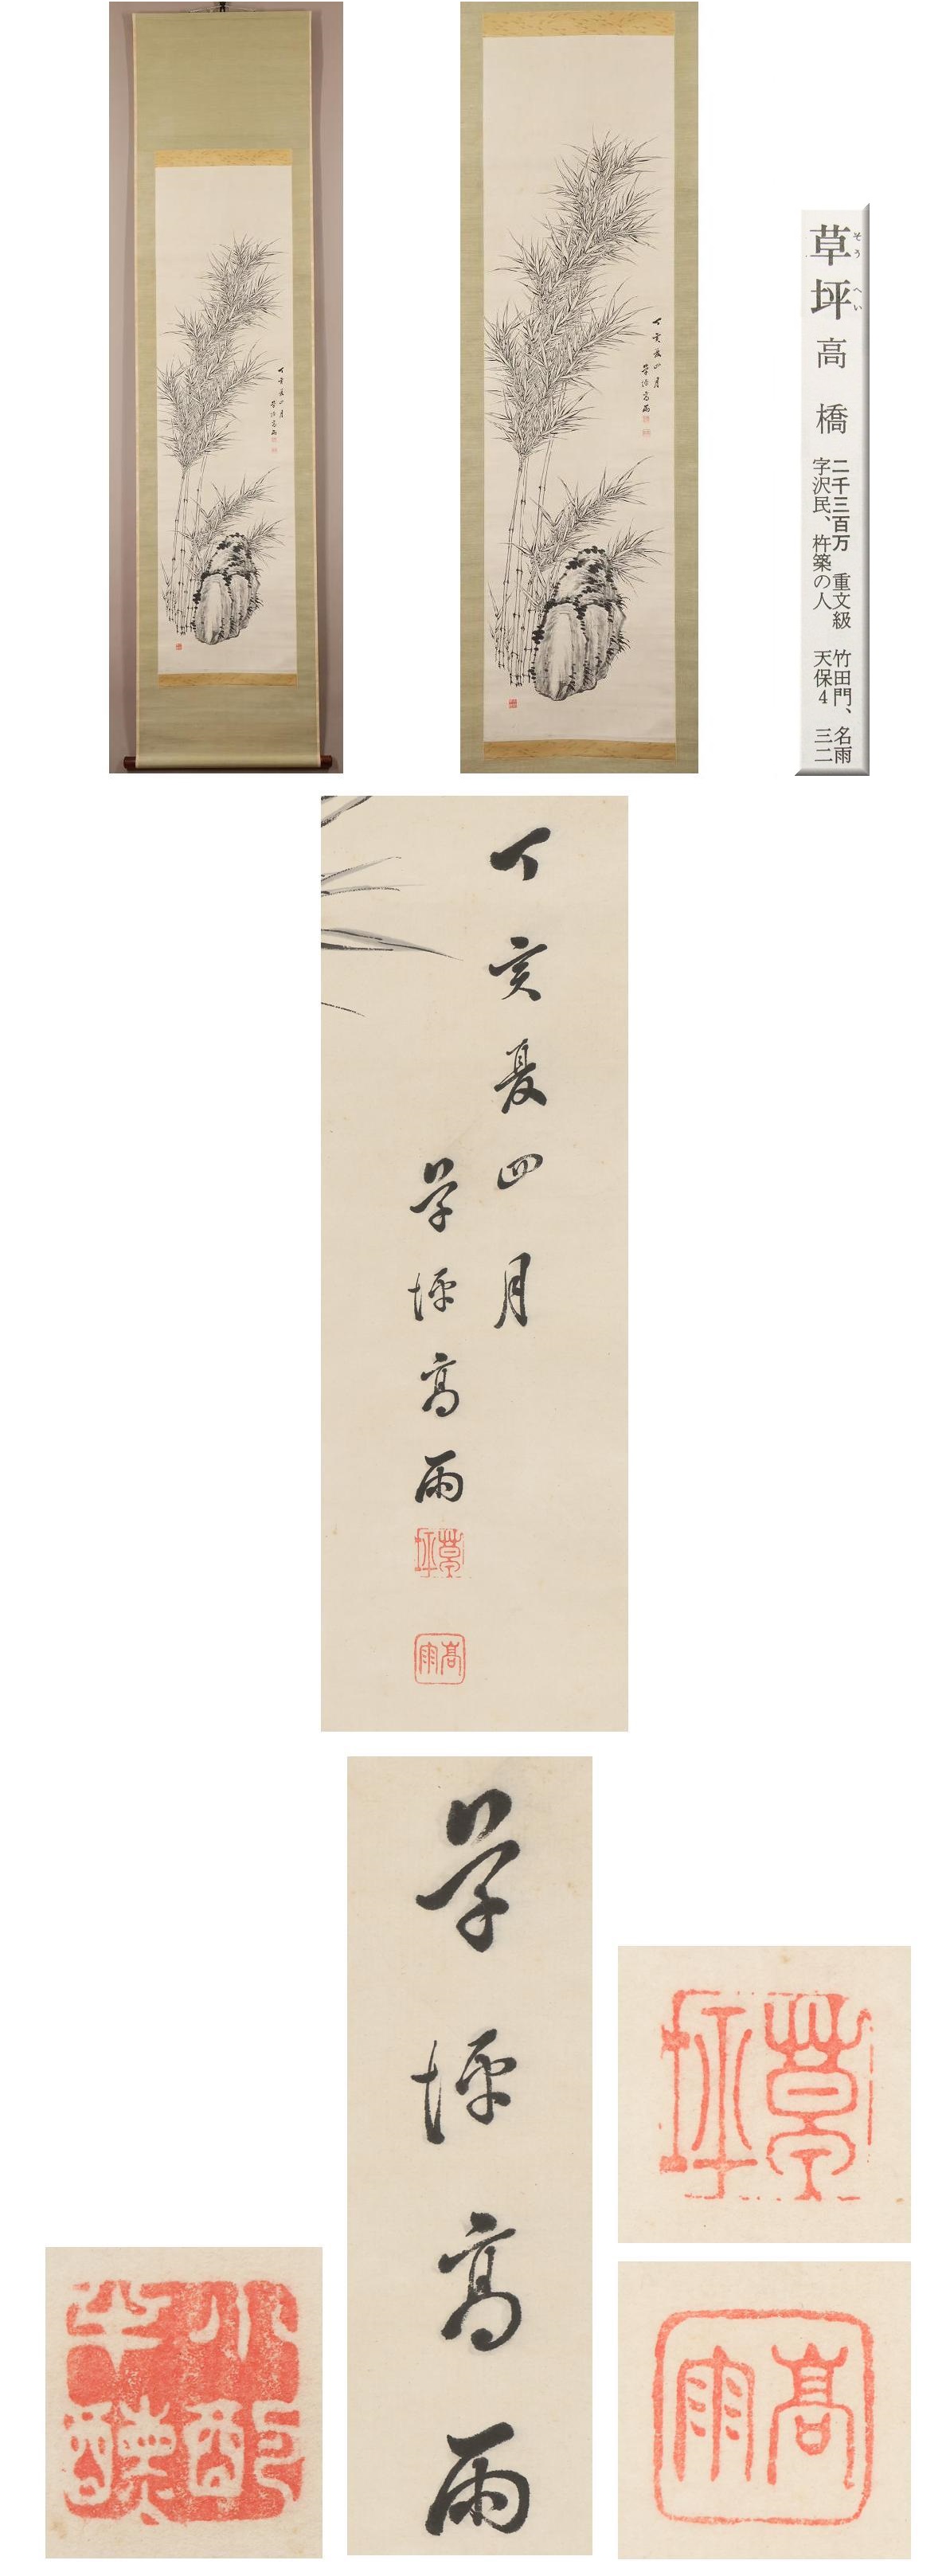 草坪
そうへい
高橋
二千三百万 重文級 竹田門、名雨
字沢民、杵築の人 天保4 三二
丁亥夏四月
草坪高雨
草坪
高雨
草坪高雨
草坪
高雨